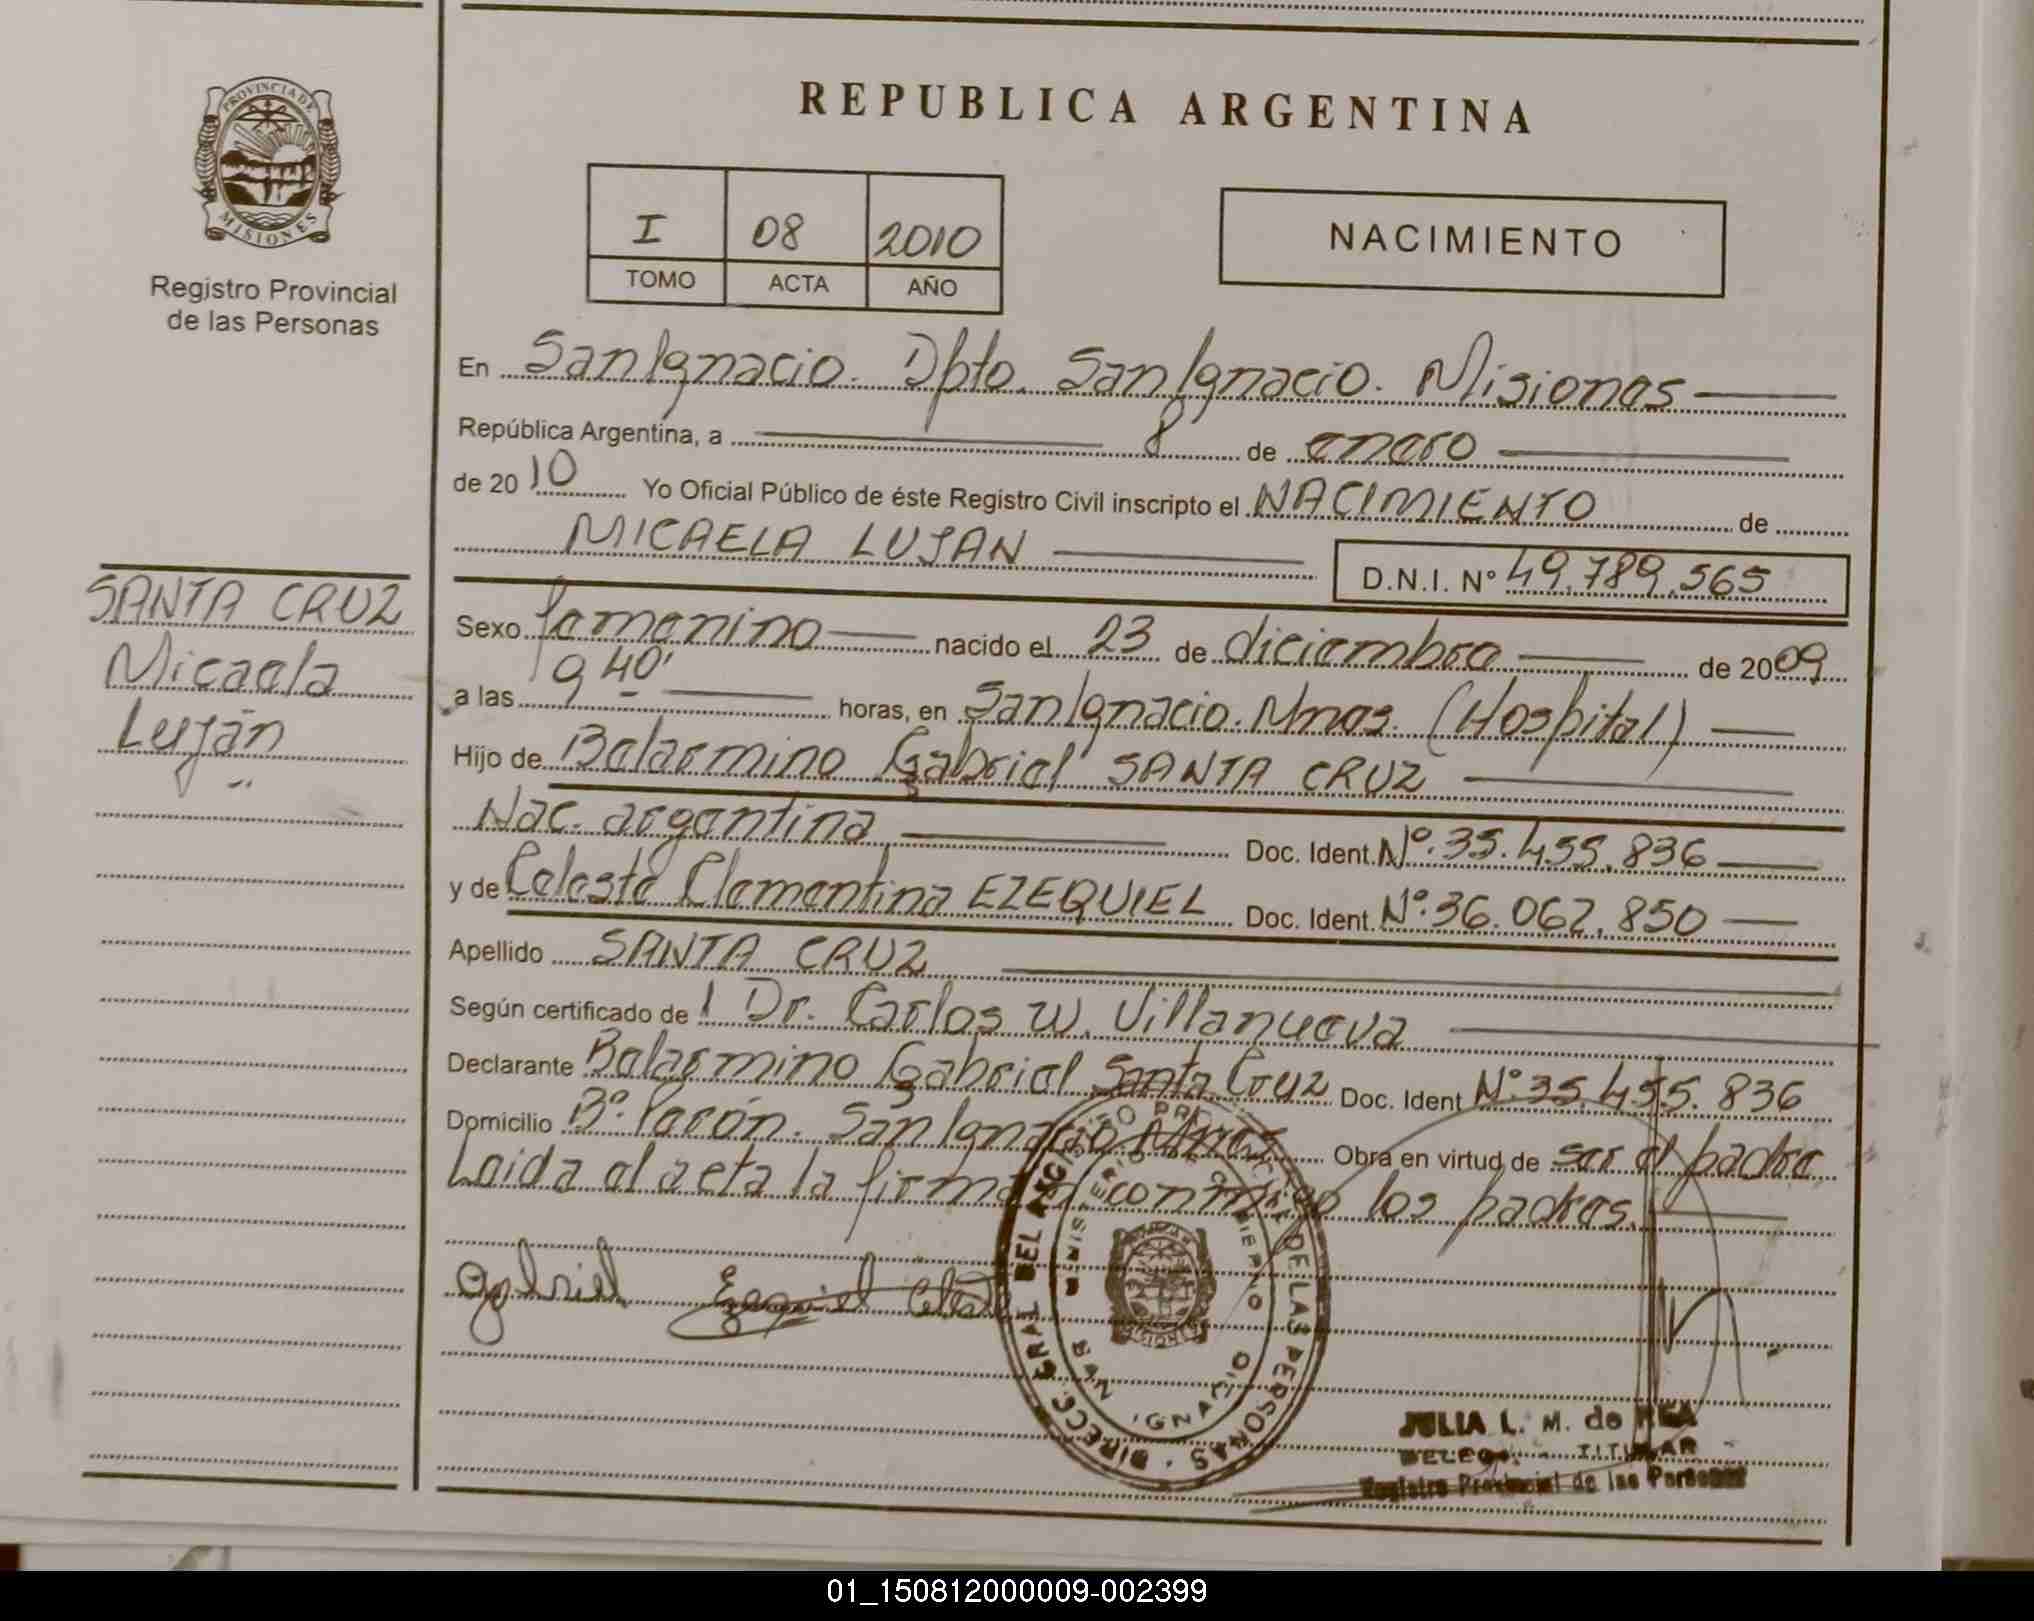 PROVINCIA DE
MISIONES
Registro Provincial
de las Personas
SANTA CRUZ
Micaela
Luján
REPUBLICA ARGENTINA
I 08 2010
TOMO ACTA AÑO
NACIMIENTO
En San Ignacio. Dpto. San Ignacio. Misiones
República Argentina, a 8 de enero
de 2010 Yo Oficial Público de éste Registro Civil inscripto el NACIMIENTO de
MICAELA LUJAN
D.N.I. Nº 49.789.565
Sexo femenino nacido el 23 de diciembre de 2009
a las 9 40' horas, en San Ignacio. Mnes. (Hospital)
Hijo de Belarmino Gabriel SANTA CRUZ
Nac. argentina Doc. Ident. Nº. 35.455.836
y de Celeste Clementina EZEQUIEL Doc. Ident. Nº. 36.062.850
Apellido SANTA CRUZ
Según certificado de l Dr. Carlos W. Villanueva
Declarante Belarmino Gabriel Santa Cruz Doc. Ident Nº. 35.455.836
Domicilio Bº. Parón. San Ignacio Mnes Obra en virtud de ser el padre
Leida el acta la firman conmigo los padres.
Gabriel Ezequiel Celeste
DIRECC. GRAL DEL REGISTRO PROVINCIAL DE LAS PERSONAS
MINISTERIO DE GOBIERNO
SAN IGNACIO
JULIA L. M. de REA
TITULAR
Registro Provincial de las Personas
01_150812000009-002399